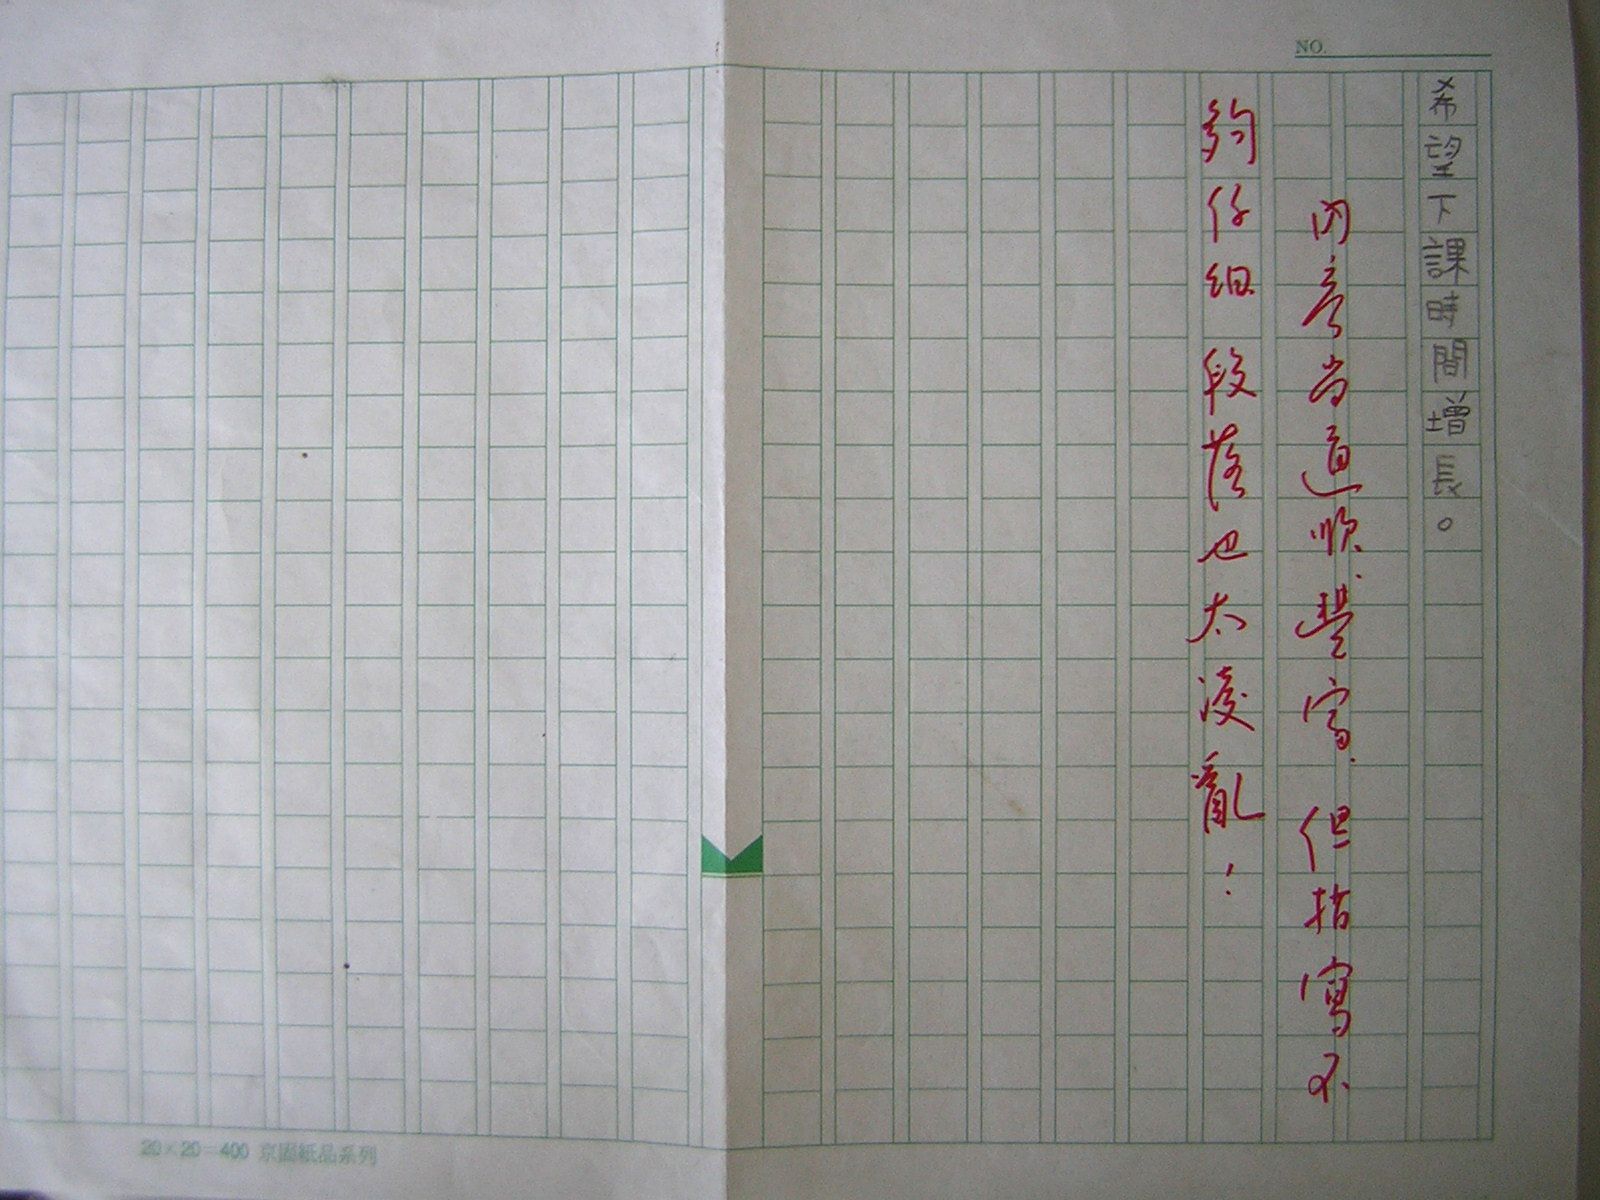 NO.
希望下課時間增長。
內容尚通順豐富，但描寫不
夠仔細，段落也太凌亂！
20×20=400 京園紙品系列